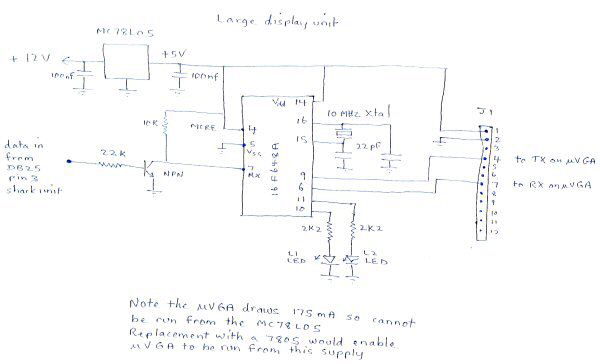 Large display unit
MC78L05
+12V
+5V
100nf
100nf
Vdd 14
16
10 MHz Xtal
J1
10K
MCRE
4
15
22pf
5
Vss
16F648A
data in
from
DB25
pin 3
shark unit
22K
NPN
7
RX
9
6
11
10
1
2
3
4
5
6
7
8
9
10
11
12
to TX on µVGA
to RX on µVGA
2K2
2K2
L1
LED
L2
LED
Note the µVGA draws 175mA so cannot
be run from the MC78L05
Replacement with a 7805 would enable
µVGA to be run from this supply